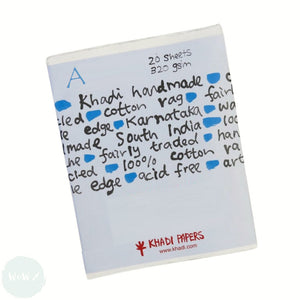 20 Sheets
A
320 gsm
Khadi handmade
cled cotton rag fair
edge Karnataka
made South India han
he fairly traded
cled 100% cotton rag
e edge acid free art
KHADI PAPERS
www.khadi.com